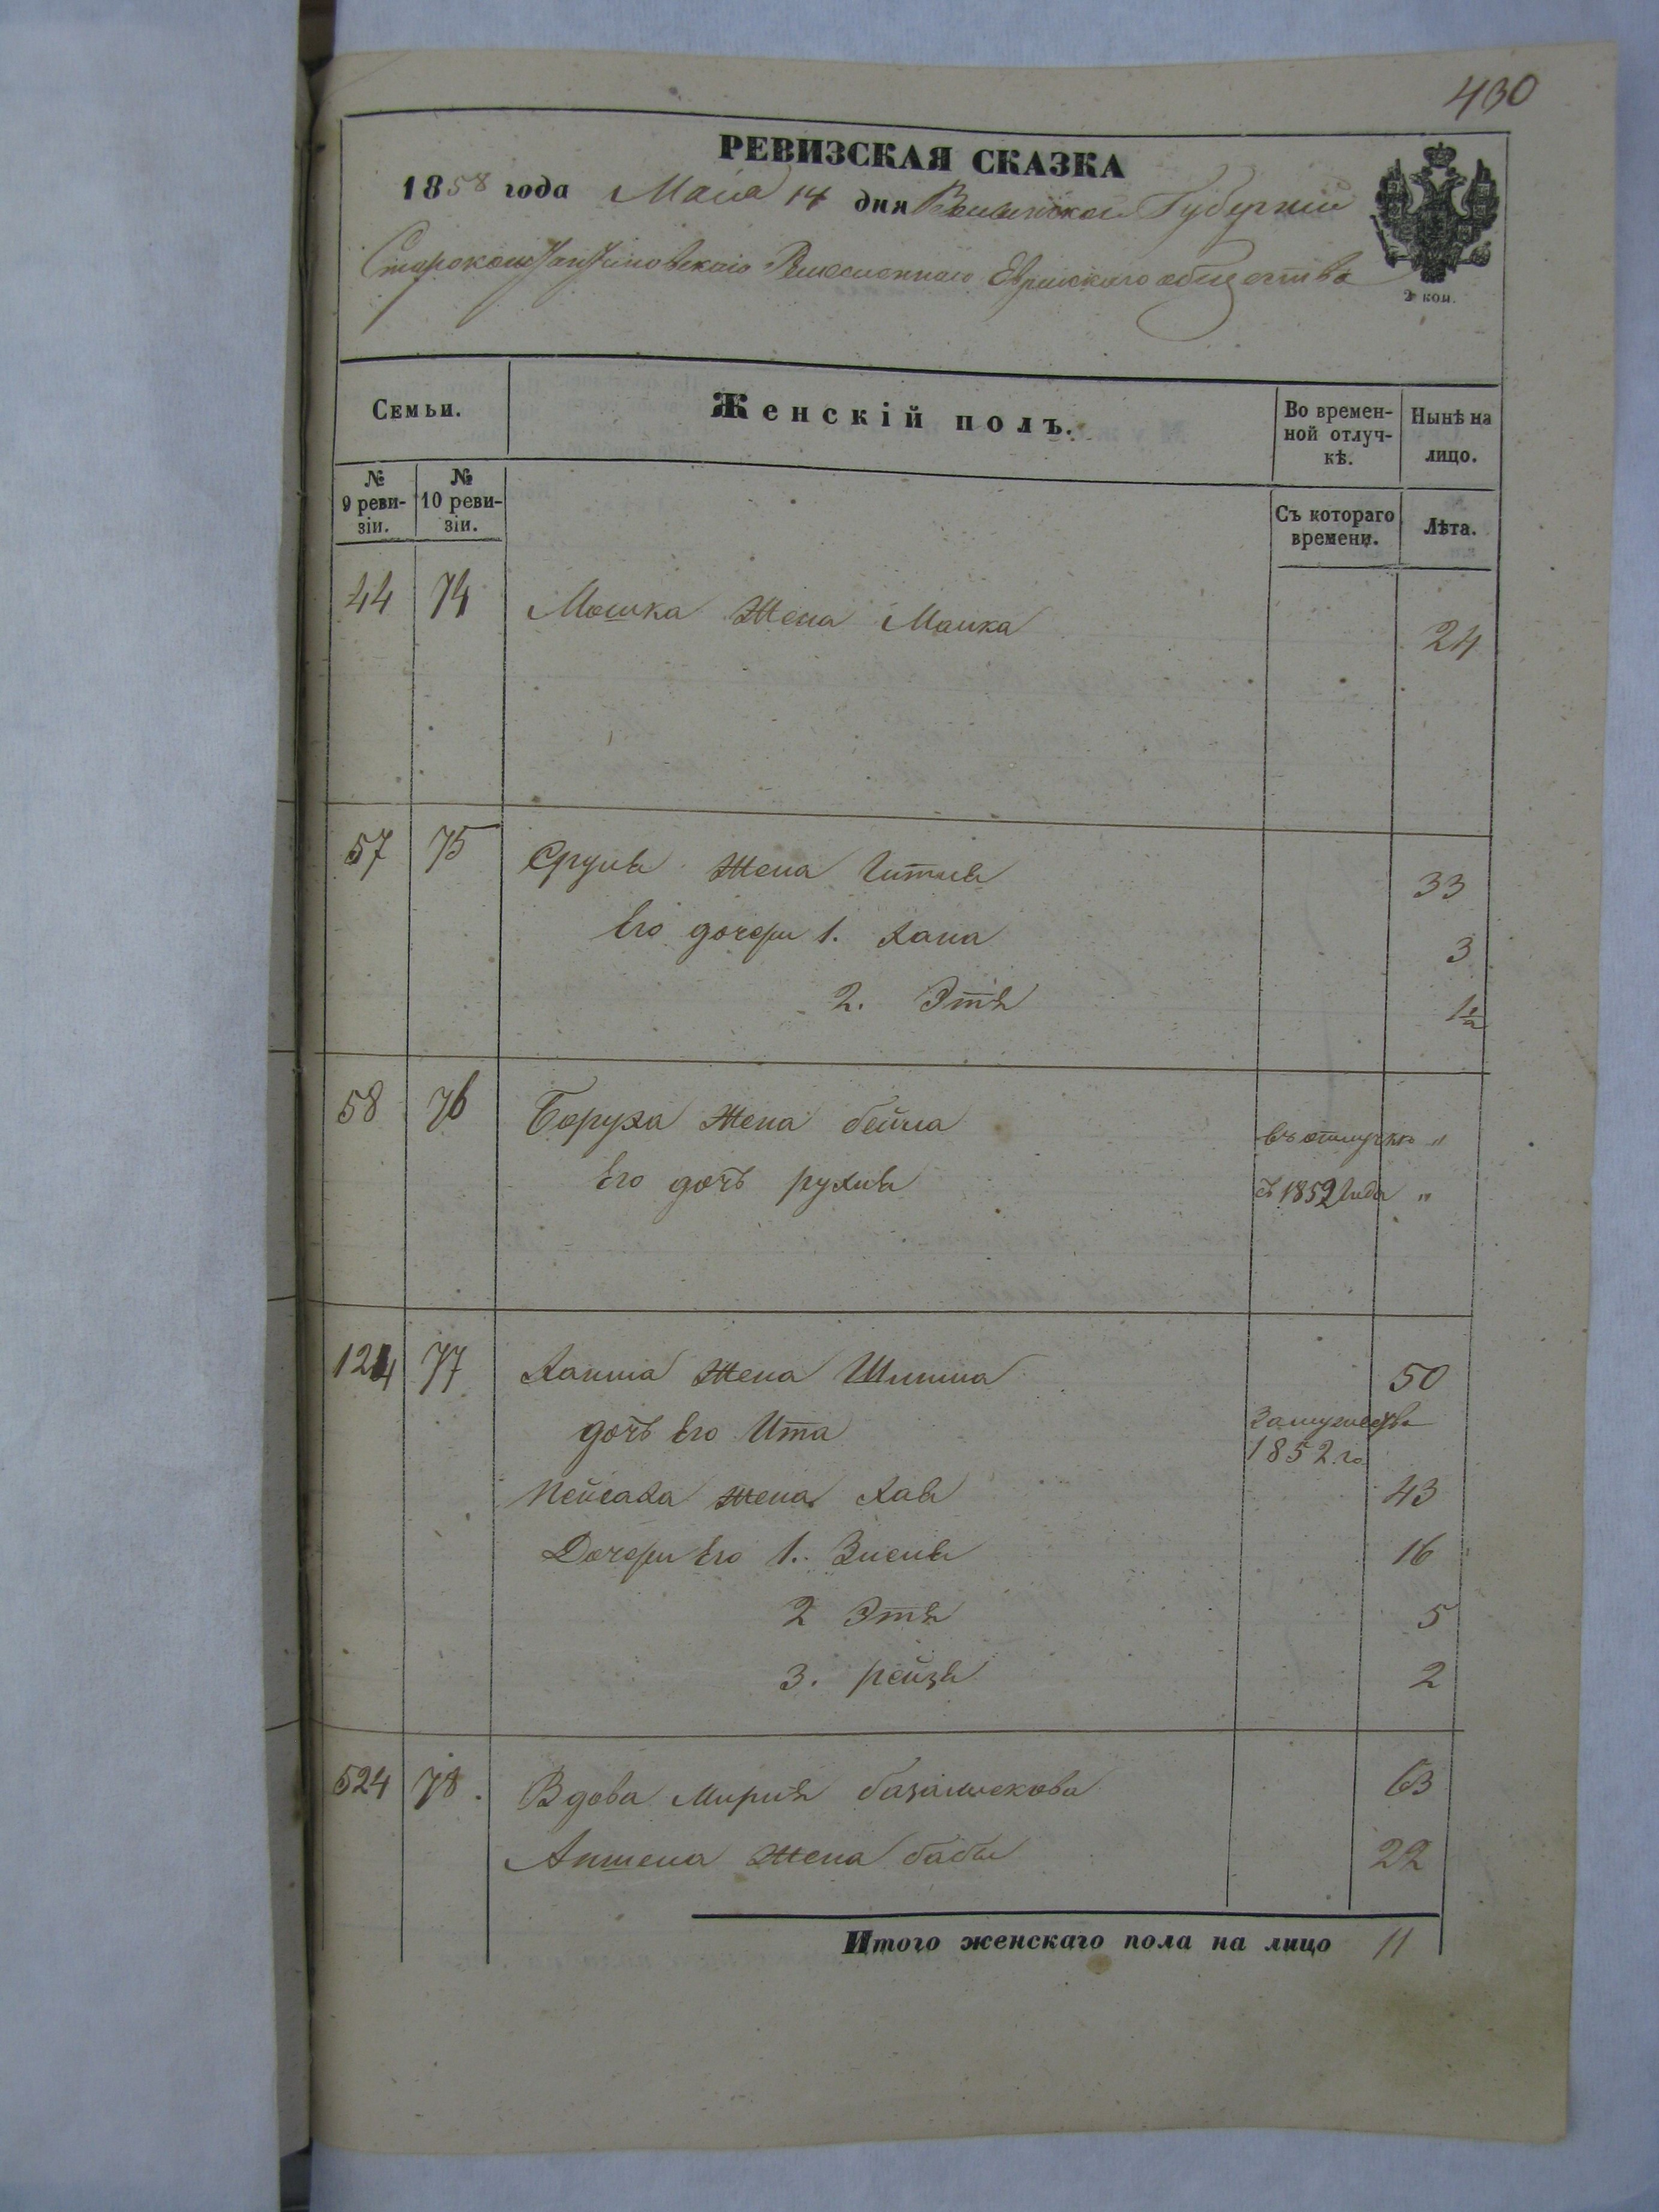 430
РЕВИЗСКАЯ СКАЗКА
1858 года Маія 14 дня Волынской Губерніи
Староконстантиновскаго Ремесленнаго Еврейскаго общества
2 коп.
Семьи. Женскій полъ. Во времен- Нынѣ на
ной отлуч- лицо.
кѣ.
№ №
9 реви- 10 реви- Съ котораго Лѣта.
зіи. зіи. времени.
44 74 Мошка Жена Малка 24
57 75 Сруля Жена Гитля 33
Его дочери 1. Хана 3
2. Этя 1½
58 76 Боруха Жена бейла въ отлучкѣ "
Его дочь рухля съ 1852 года "
124 77 Хаима Жена 50
дочь Его Ита Замужества
1852 го
Пейсаха жена Хава 43
Дочери Его 1. Зисля 16
2 Этя 5
3. рейзя 2
524 78. Вдова Мирля 63
Жена бася 22
Итого женскаго пола на лицо 11